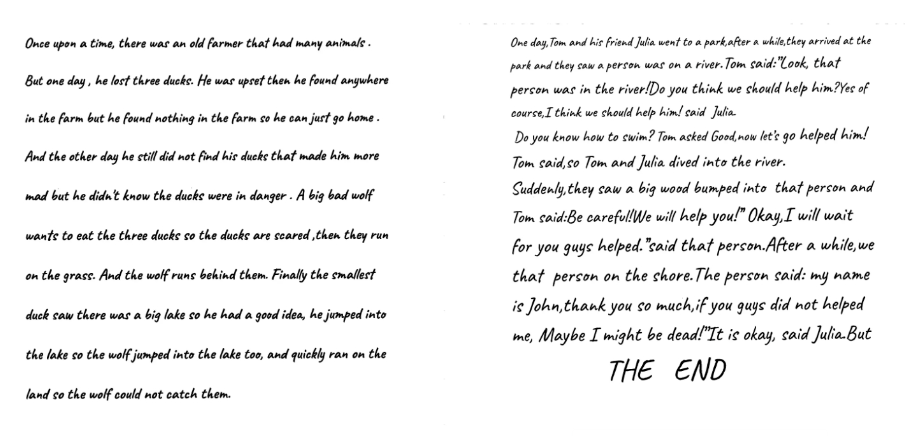 Once upon a time, there was an old farmer that had many animals .
But one day , he lost three ducks. He was upset then he found anywhere
in the farm but he found nothing in the farm so he can just go home .
And the other day he still did not find his ducks that made him more
mad but he didn't know the ducks were in danger . A big bad wolf
wants to eat the three ducks so the ducks are scared ,then they run
on the grass. And the wolf runs behind them. Finally the smallest
duck saw there was a big lake so he had a good idea, he jumped into
the lake so the wolf jumped into the lake too, and quickly ran on the
land so the wolf could not catch them.
One day,Tom and his friend Julia went to a park,after a while,they arrived at the
park and they saw a person was on a river.Tom said:"Look, that
person was in the river!Do you think we should help him?Yes of
course,I think we should help him! said Julia.
Do you know how to swim? Tom asked Good,now let's go helped him!
Tom said,so Tom and Julia dived into the river.
Suddenly,they saw a big wood bumped into that person and
Tom said:Be careful!We will help you!" Okay,I will wait
for you guys helped."said that person.After a while,we
that person on the shore.The person said: my name
is John,thank you so much,if you guys did not helped
me, Maybe I might be dead!"It is okay, said Julia.But
THE END